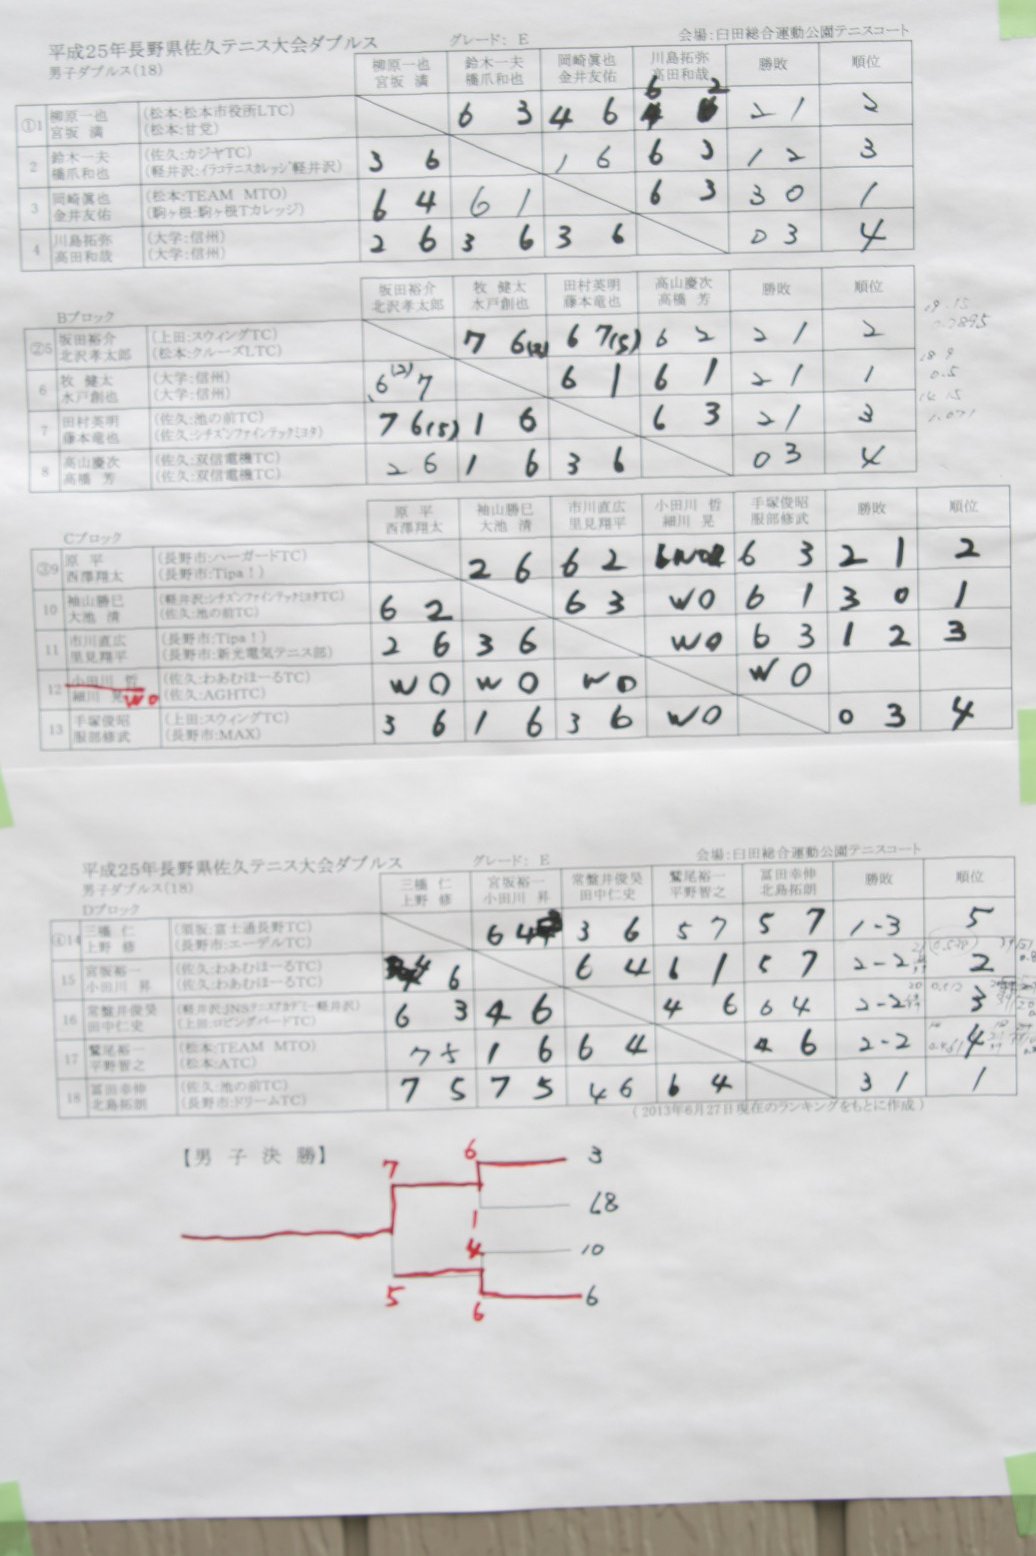 平成25年長野県佐久テニス大会ダブルス グレード: E 会場:臼田総合運動公園テニスコート
男子ダブルス(18)
柳原一也 宮坂 満 鈴木一夫 橋爪和也 岡崎眞也 金井友佑 川島拓弥 高田和哉 勝敗 順位
①1 柳原一也 宮坂 満 (松本:松本市役所LTC) (松本:甘党) 6 3 4 6 6 2 2 1 2
2 鈴木一夫 橋爪和也 (佐久:カジヤTC) (軽井沢:イラコテニスカレッジ軽井沢) 3 6 1 6 6 3 1 2 3
3 岡崎眞也 金井友佑 (松本:TEAM MTO) (駒ヶ根:駒ヶ根Tカレッジ) 6 4 6 1 6 3 3 0 1
4 川島拓弥 高田和哉 (大学:信州) (大学:信州) 2 6 3 6 3 6 0 3 4
Bブロック
坂田裕介 北沢孝太郎 牧 健太 水戸創也 田村英明 藤本竜也 高山慶次 高橋 芳 勝敗 順位
②5 坂田裕介 北沢孝太郎 (上田:スウィングTC) (松本:クルーズLTC) 7 6(2) 6 7(5) 6 2 2 1 2
6 牧 健太 水戸創也 (大学:信州) (大学:信州) 6(2) 7 6 1 6 1 2 1 1
7 田村英明 藤本竜也 (佐久:池の前TC) (佐久:シチズンファインテックミヨタ) 7 6(5) 1 6 6 3 2 1 3
8 高山慶次 高橋 芳 (佐久:双信電機TC) (佐久:双信電機TC) 2 6 1 6 3 6 0 3 4
Cブロック
原 平 西澤翔太 袖山勝巳 大池 清 市川直広 里見翔平 小田川 哲 細川 晃 手塚俊昭 服部修武 勝敗 順位
③9 原 平 西澤翔太 (長野市:ハーガードTC) (長野市:Tipa!) 2 6 6 2 6 3 2 1 2
10 袖山勝巳 大池 清 (軽井沢:シチズンファインテックミヨタTC) (佐久:池の前TC) 6 2 6 3 WO 6 1 3 0 1
11 市川直広 里見翔平 (長野市:Tipa!) (長野市:新光電気テニス部) 2 6 3 6 WO 6 3 1 2 3
12 小田川 哲 細川 晃 WO (佐久:わあむほーるTC) (佐久:AGHTC) WO WO WO WO
13 手塚俊昭 服部修武 (上田:スウィングTC) (長野市:MAX) 3 6 1 6 3 6 WO 0 3 4
平成25年長野県佐久テニス大会ダブルス グレード: E 会場:臼田総合運動公園テニスコート
男子ダブルス(18)
Dブロック
三橋 仁 上野 修 宮坂裕一 小田川 昇 常盤井俊昊 田中仁史 鷲尾裕一 平野智之 冨田幸伸 北島拓朗 勝敗 順位
④14 三橋 仁 上野 修 (須坂:富士通長野TC) (長野市:エーデルTC) 6 4 3 6 5 7 5 7 1-3 5
15 宮坂裕一 小田川 昇 (佐久:わあむほーるTC) (佐久:わあむほーるTC) 4 6 6 4 6 1 5 7 2-2 2
16 常盤井俊昊 田中仁史 (軽井沢:JNSテニスアカデミー軽井沢) (上田:ロビングバードTC) 6 3 4 6 4 6 6 4 2-2 3
17 鷲尾裕一 平野智之 (松本:TEAM MTO) (松本:ATC) 7 5 1 6 6 4 4 6 2-2 4
18 冨田幸伸 北島拓朗 (佐久:池の前TC) (長野市:ドリームTC) 7 5 7 5 4 6 6 4 3 1 1
(2013年6月27日現在のランキングをもとに作成)
【男子決勝】
7 6 3
1 18
4 10
5 6 6